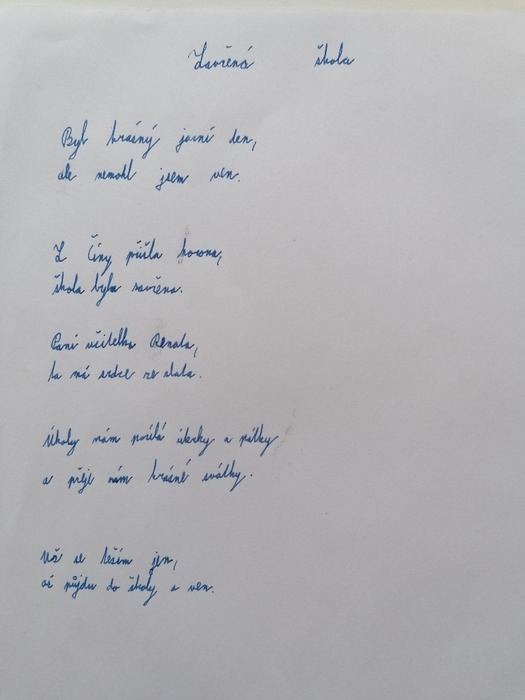 Zavřená škola
Byl krásný jarní den,
ale nemohl jsem ven.
Z Číny přišla korona,
škola byla zavřena.
Paní učitelka Renata,
ta má srdce ze zlata.
Úkoly nám posílá úterky a pátky
a přeje nám krásné svátky.
Už se těším jen,
až půjdu do školy a ven.